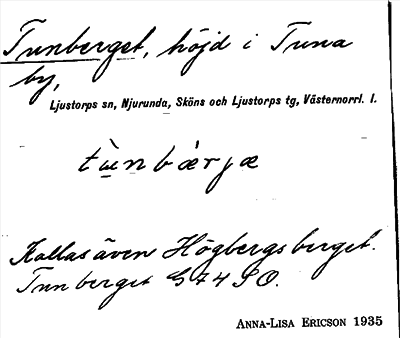 Tunberget, höjd i Tuna
by,
Ljustorps sn, Njurunda, Sköns och Ljustorps tg, Västernorrl. l.
tùnbærjæ
Kallas även Högbergsberget.
Tunberget G74SO.
ANNA-LISA ERICSON 1935